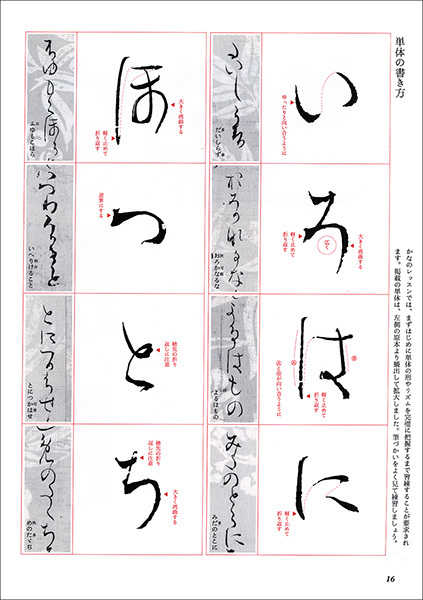 単体の書き方
かなのレッスンでは、まずはじめに単体の形やリズムを完璧に把握するまで習練することが要求され
ます。掲載の単体は、左側の原本より摘出して拡大しました。筆づかいをよく見て練習しましょう。
い
ゆったりと向い合うように
だいしらず
ろ
大きく湾曲する
軽く止めて
折り返す
広く
おろかなるな
は
Ⓑ
軽く止めて
折り返す
Ⓐ
ⒶとⒷが向い合うように
よるはもの
に
軽く止めて
折り返す
みだのとこに
ほ
大きく湾曲する
軽く止めて
折り返す
ふゆもこほら
へ
逆筆にする
いへりけること
と
穂先の折り
返しに注意
とにつかはせ
ち
穂先の折り
返しに注意
大きく湾曲する
16